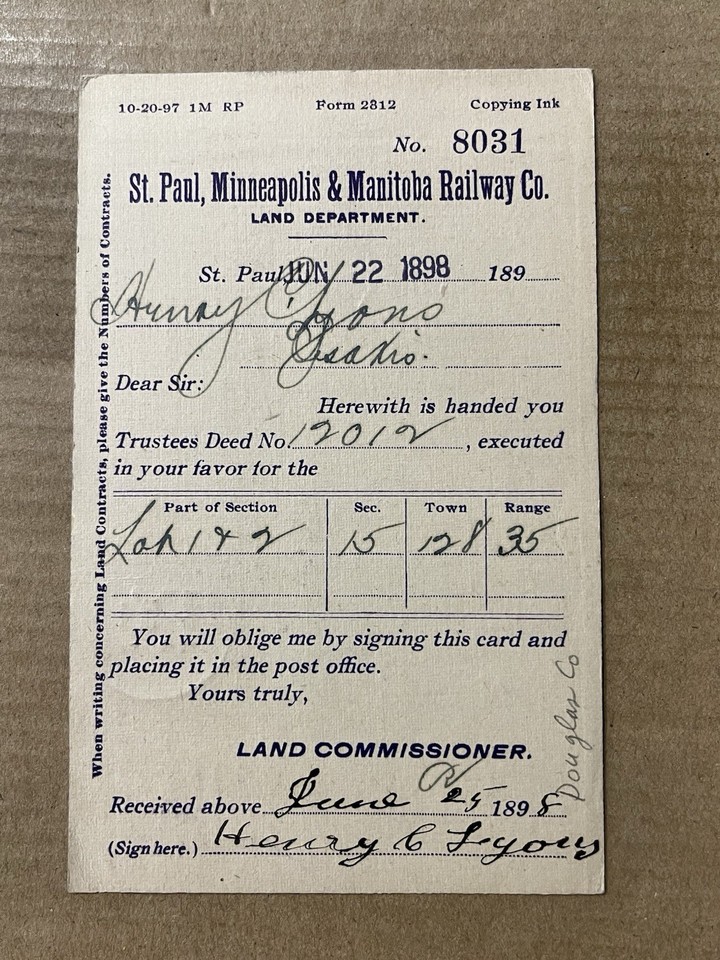 10-20-97 1M RP Form 2812 Copying Ink
No. 8031
St. Paul, Minneapolis & Manitoba Railway Co.
LAND DEPARTMENT.
St. Paul, JUN 22 1898 189
Henry C Lyons
Osakis.
Dear Sir:
Herewith is handed you
Trustees Deed No. 12012, executed
in your favor for the
Part of Section Sec. Town Range
Lots 1 & 2 15 128 35
You will oblige me by signing this card and
placing it in the post office.
Yours truly,
LAND COMMISSIONER.
Received above June 25 1898
(Sign here.) Henry C Lyons
When writing concerning Land Contracts, please give the Numbers of Contracts.
Douglas Co